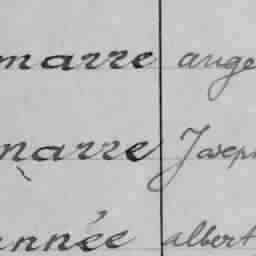 marre ange
narre Joseph
année albert